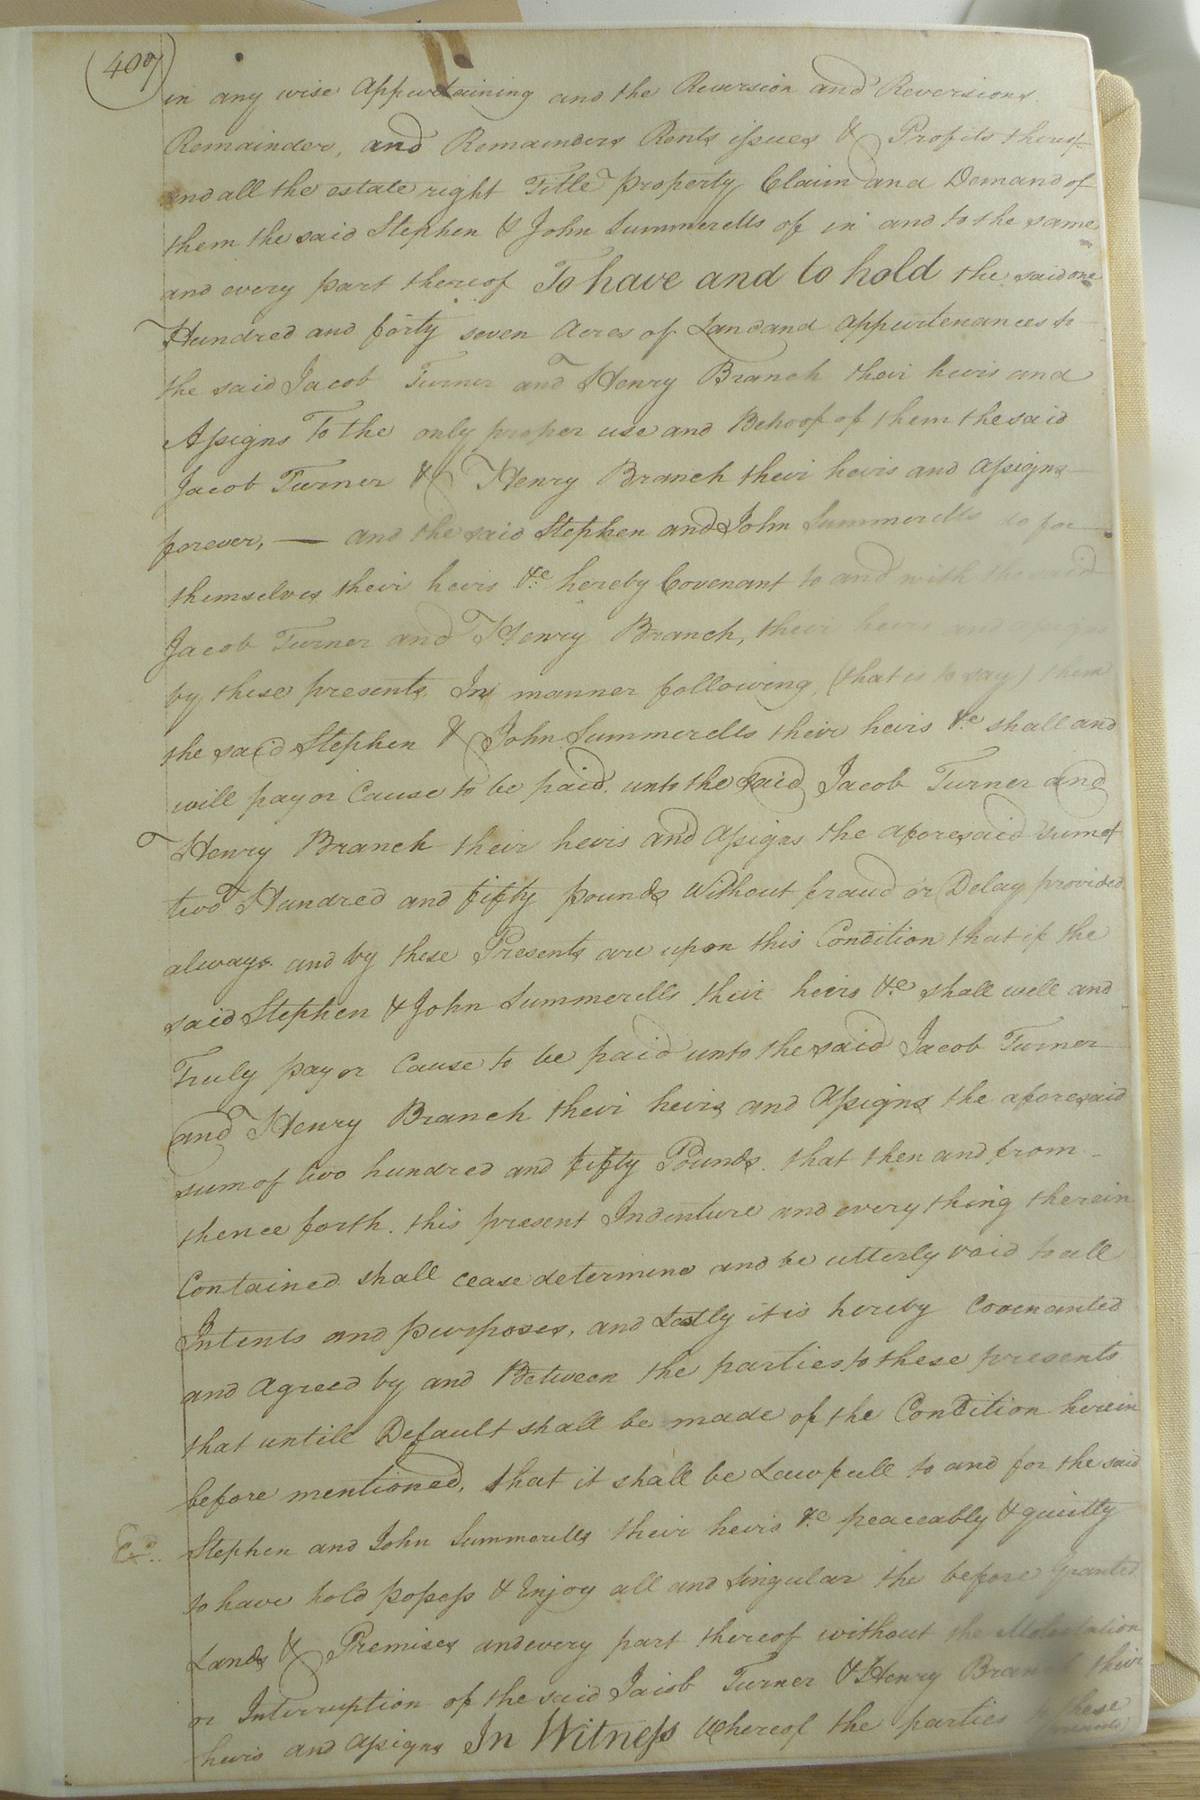 (407)
in any wise Appurtaining and the Reversion and Reversions
Remainder, and Remainders Rents issues & Profits thereof
and all the estate right Title property Claim and Demand of
them the said Stephen & John Summerells of in and to the same
and every part thereof To have and to hold the said one
Hundred and forty seven Acres of Land and Appurtenances to
the said Jacob Turner and Henry Branch their heirs and
Assigns To the only proper use and Behoof of them the said
Jacob Turner & Henry Branch their heirs and Assigns
forever, — and the said Stephen and John Summerells do for
themselves their heirs &c hereby Covenant to and with the said
Jacob Turner and Henry Branch, their heirs and assigns
by these presents, In manner following, (that is to say) them
the said Stephen & John Summerells their heirs &c shall and
will pay or Cause to be paid unto the said Jacob Turner and
Henry Branch their heirs and Assigns the aforesaid sum of
two Hundred and fifty pounds Without fraud or Delay provided
always and by these Presents are upon this Condition that if the
said Stephen & John Summerells their heirs &c shall well and
Truly pay or Cause to be paid unto the said Jacob Turner
and Henry Branch their heirs and Assigns the aforesaid
sum of two hundred and fifty Pounds. that then and from
thence forth. this present Indenture and every thing therein
Contained shall cease determine and be utterly void to all
Intents and purposes, and Lastly it is hereby Covenanted
and Agreed by and Between the parties to these presents
that untill Default shall be made of the Condition herein
before mentioned, that it shall be Lawfull to and for the said
Stephen and John Summerells their heirs &c peaceably & quietly
to have hold possess & Enjoy all and singular the before granted
Lands & Premises and every part thereof without the Molestation
or Interruption of the said Jacob Turner & Henry Branch their
heirs and Assigns In Witness Whereof the parties these
Ex..